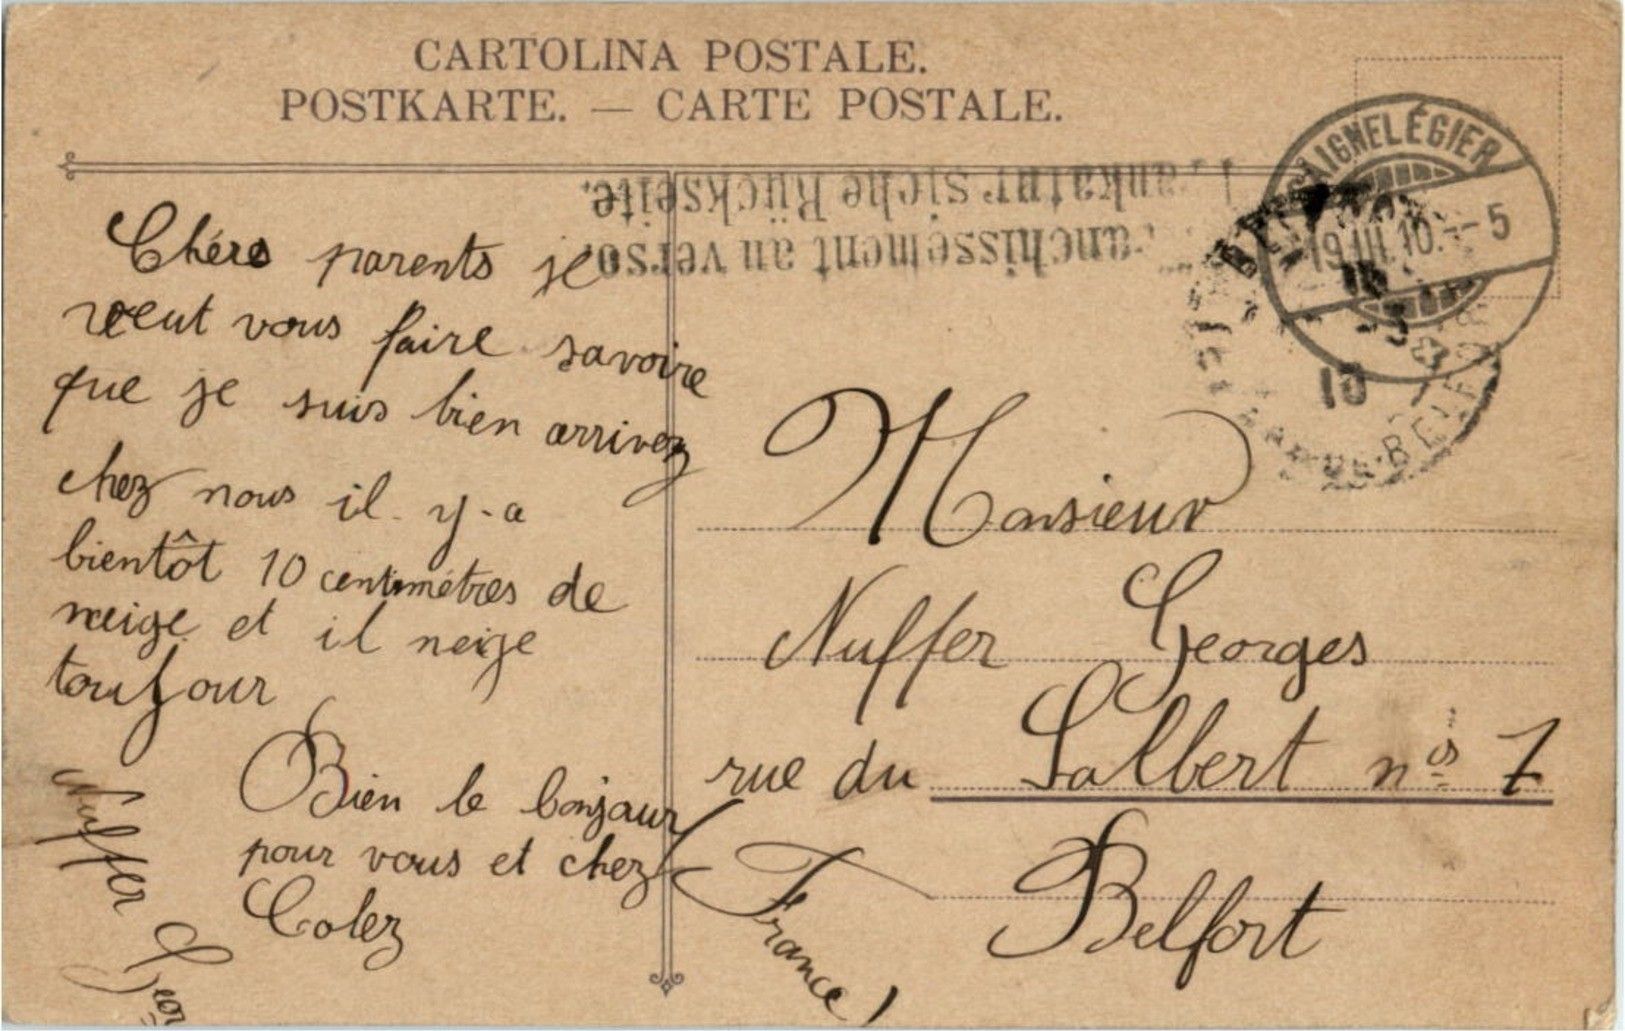 CARTOLINA POSTALE.
POSTKARTE. — CARTE POSTALE.
Frankatur siehe Rückseite.
Affranchissement au verso.
SAIGNELÉGIER
19.III.10.–5
Chéres parents je
veut vous faire savoire
que je suis bien arrivez
chez nous il y-a
bientôt 10 centimétres de
neige et il neige
toujour
Bien le bonjour
pour vous et chez
Colez
Nuffer Geor
Monsieur
Nuffer Georges
rue du Salbert nos 7
Belfort
(France)